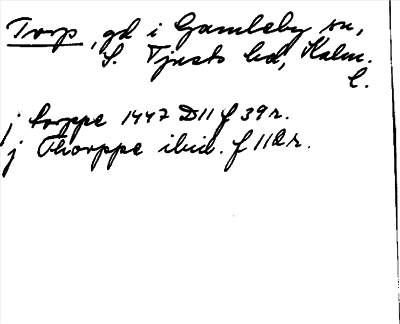 Torp, gd i Gamleby sn,
S. Tjusts hd, Kalm.
l.
j torppe 1447 D11 f 39r.
j Thorppe ibid. f 112r.